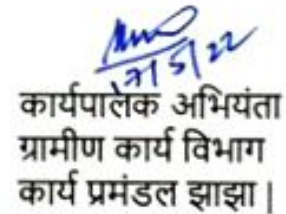 17/5/22
कार्यपालक अभियंता
ग्रामीण कार्य विभाग
कार्य प्रमंडल झाझा।